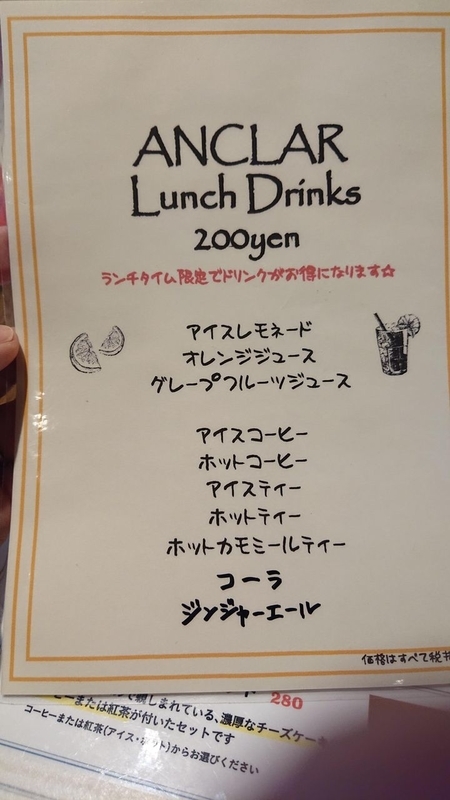 ANCLAR
Lunch Drinks
200yen
ランチタイム限定でドリンクがお得になります☆
アイスレモネード
オレンジジュース
グレープフルーツジュース
アイスコーヒー
ホットコーヒー
アイスティー
ホットティー
ホットカモミールティー
コーラ
ジンジャーエール
価格はすべて税
280
親しまれている、濃厚なチーズケーキ
または紅茶が付いたセットです
コーヒーまたは紅茶(アイス・ホット)からお選びください